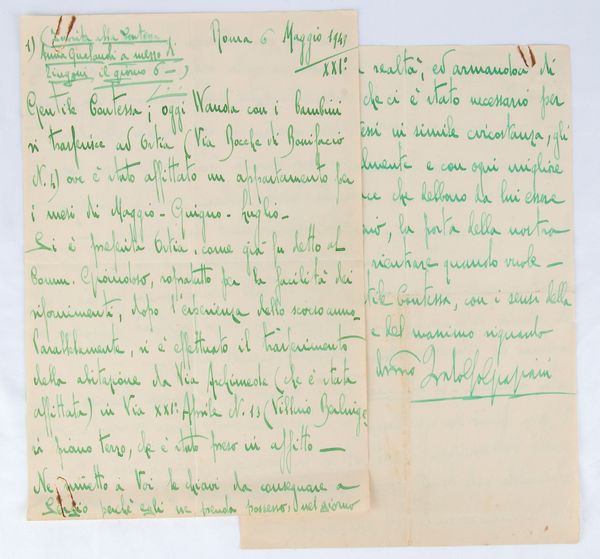 1) Scritta alla Contessa
Anna Guelandi a mezzo di
Zingoni il giorno 6 —)
Roma 6 Maggio 194
XXIº
Gentile Contessa, oggi Wanda con i bambini
si trasferisce ad Ostia (Via Bocche di Bonifacio
N. 4) ove è stato affittato un appartamento per
i mesi di Maggio - Giugno - Luglio -
Si è preferita Ostia, come già fu detto al
Comm. sopratutto per la facilità dei
rifornimenti, dopo l'esperienza dello scorso anno.
Parallelamente, si è effettuato il trasferimento
della abitazione da Via Archimede (che è stata
affittata) in Via XXIº Aprile N. 13 (Villino
in piano terzo, che è stato preso in affitto —
Ne rimetto a Voi le chiavi da consegnare a
Sergio perchè egli ne prenda possesso, nel giorno
realtà, ed armandoci di
che ci è stato necessario per
in simile circostanza, gli
e con ogni migliore
che debbono da lui essere
la porta della nostra
rientrare quando vuole —
Contessa, con i sensi della
e del massimo riguardo